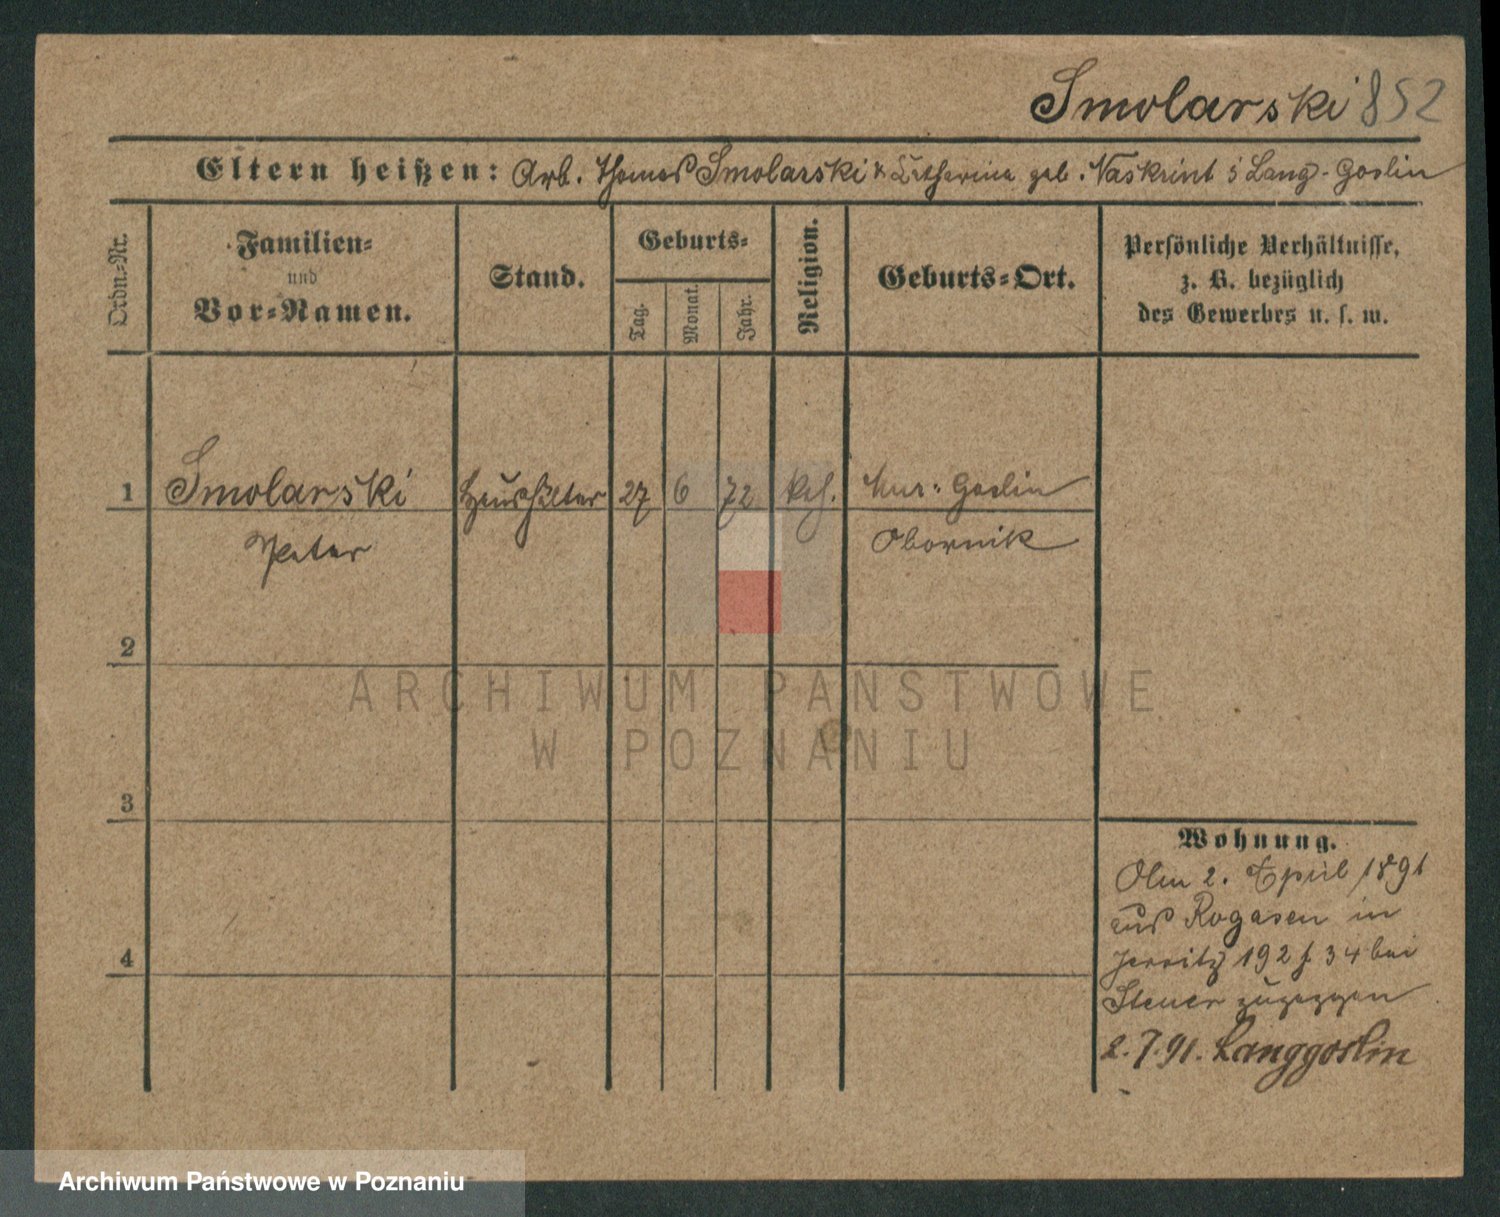 Smolarski 852
Eltern heißen: Arb. Thomas Smolarski & Katharina geb. Naskrent i Lang-Goslin
Ordn.-Nr.
Familien-
und
Vor-Namen.
Stand.
Geburts-
Tag.
Monat.
Jahr.
Religion.
Geburts-Ort.
Persönliche Verhältnisse,
z. B. bezüglich
des Gewerbes u. s. w.
1 Smolarski Haushälter 27 6 72 kth. Mur-Goslin
Peter Obornik
2
3
4
Wohnung.
2. April 1891
aus Rogasen in
Jersitz 192 f. 34 bei
Steuer zugezogen
2.7.91. Langgoslin
ARCHIWUM PAŃSTWOWE
W POZNANIU
Archiwum Państwowe w Poznaniu